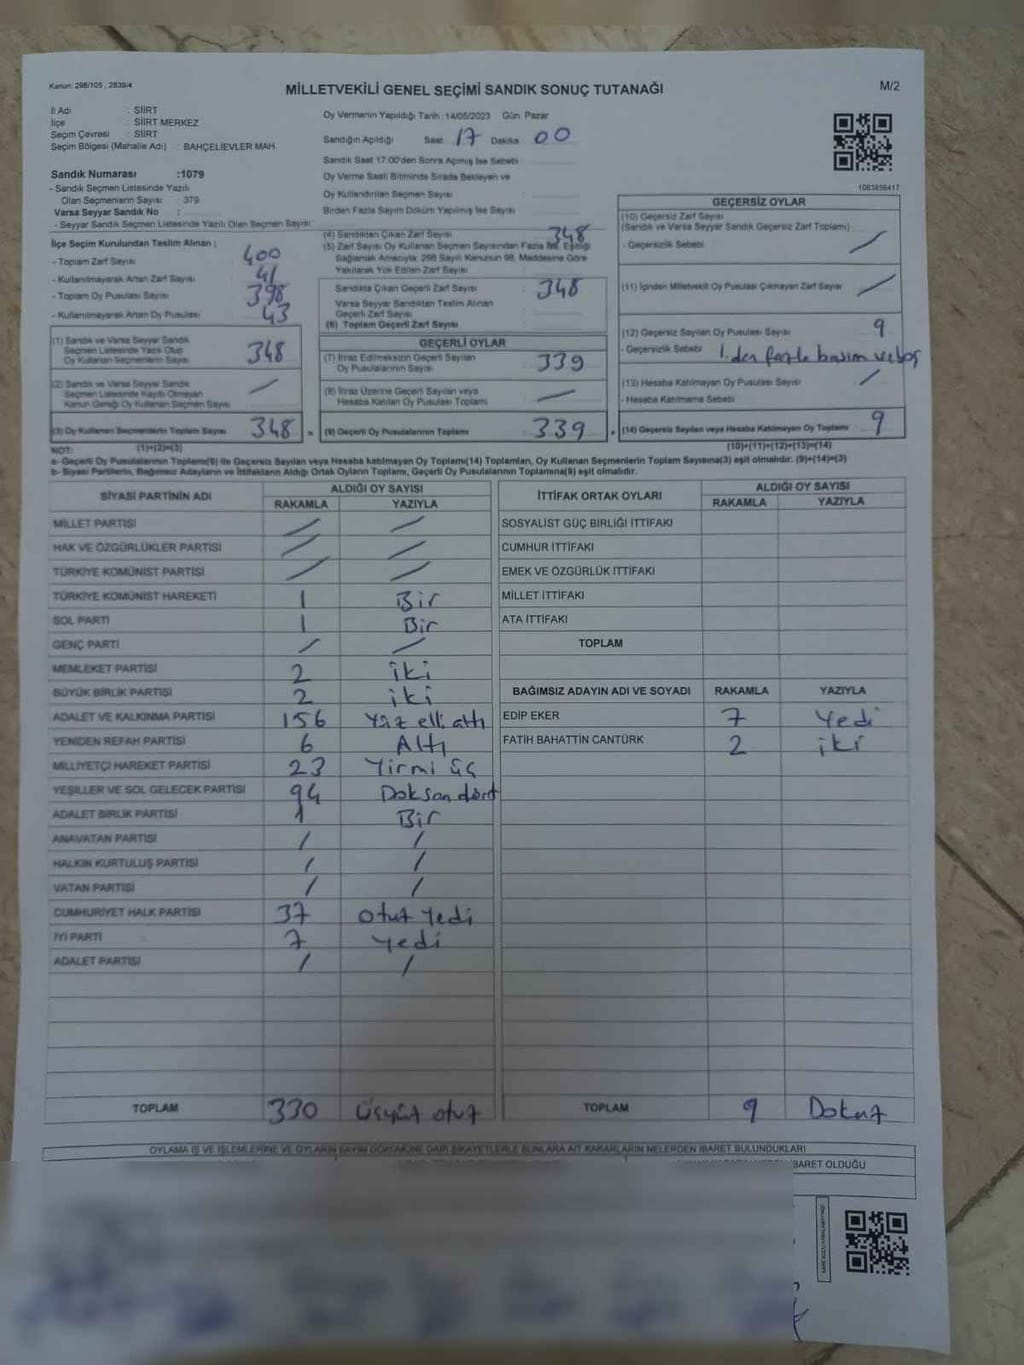 Kanun: 298/105 , 2839/4
MİLLETVEKİLİ GENEL SEÇİMİ SANDIK SONUÇ TUTANAĞI
M/2
İl Adı : SİİRT
İlçe : SİİRT MERKEZ
Seçim Çevresi : SİİRT
Seçim Bölgesi (Mahalle Adı) : BAHÇELİEVLER MAH.
Sandık Numarası :1079
- Sandık Seçmen Listesinde Yazılı
Olan Seçmenlerin Sayısı : 379
Varsa Seyyar Sandık No :
- Seyyar Sandık Seçmen Listesinde Yazılı Olan Seçmen Sayısı
İlçe Seçim Kurulundan Teslim Alınan ;
- Toplam Zarf Sayısı 400
- Kullanılmayarak Artan Zarf Sayısı 41
- Toplam Oy Pusulası Sayısı 398
- Kullanılmayarak Artan Oy Pusulası 43
(1) Sandık ve Varsa Seyyar Sandık
Seçmen Listesinde Yazılı Olup
Oy Kullanan Seçmenlerin Sayısı 348
(2) Sandık ve Varsa Seyyar Sandık
Seçmen Listesinde Kayıtlı Olmayan
Kanun Gereği Oy Kullanan Seçmen Sayısı /
(3) Oy Kullanan Seçmenlerin Toplam Sayısı 348
(1)+(2)=(3)
Oy Vermenin Yapıldığı Tarih :14/05/2023 Gün Pazar
Sandığın Açıldığı Saat 17 Dakika 00
Sandık Saat 17:00'den Sonra Açılmış İse Sebebi
Oy Verme Saati Bitiminde Sırada Bekleyen ve
Oy Kullandırılan Seçmen Sayısı
Birden Fazla Sayım Döküm Yapılmış İse Sayısı
(4) Sandıktan Çıkan Zarf Sayısı 348
(5) Zarf Sayısı Oy Kullanan Seçmen Sayısından Fazla İse, Eşitliği
Sağlamak Amacıyla, 298 Sayılı Kanunun 98. Maddesine Göre
Yakılarak Yok Edilen Zarf Sayısı
Sandıkta Çıkan Geçerli Zarf Sayısı : 348
Varsa Seyyar Sandıktan Teslim Alınan
Geçerli Zarf Sayısı
(6) Toplam Geçerli Zarf Sayısı
GEÇERLİ OYLAR
(7) İtiraz Edilmeksizin Geçerli Sayılan
Oy Pusulalarının Sayısı : 339
(8) İtiraz Üzerine Geçerli Sayılan veya
Hesaba Katılan Oy Pusulası Toplamı /
= (9) Geçerli Oy Pusulalarının Toplamı 339
1083856417
GEÇERSİZ OYLAR
(10) Geçersiz Zarf Sayısı
(Sandık ve Varsa Seyyar Sandık Geçersiz Zarf Toplamı)
- Geçersizlik Sebebi /
(11) İçinden Milletvekili Oy Pusulası Çıkmayan Zarf Sayısı /
(12) Geçersiz Sayılan Oy Pusulası Sayısı 9
- Geçersizlik Sebebi 1.den fazla basım ve boş
(13) Hesaba Katılmayan Oy Pusulası Sayısı /
- Hesaba Katılmama Sebebi
+ (14) Geçersiz Sayılan veya Hesaba Katılmayan Oy Toplamı 9
(10)+(11)+(12)+(13)=(14)
NOT:
a- Geçerli Oy Pusulalarının Toplamı(9) ile Geçersiz Sayılan veya Hesaba katılmayan Oy Toplamı(14) Toplamları, Oy Kullanan Seçmenlerin Toplam Sayısına(3) eşit olmalıdır. (9)+(14)=(3)
b- Siyasi Partilerin, Bağımsız Adayların ve İttifakların Aldığı Ortak Oyların Toplamı, Geçerli Oy Pusulalarının Toplamına(9) eşit olmalıdır.
SİYASİ PARTİNİN ADI ALDIĞI OY SAYISI
RAKAMLA YAZIYLA
MİLLET PARTİSİ / /
HAK VE ÖZGÜRLÜKLER PARTİSİ / /
TÜRKİYE KOMÜNİST PARTİSİ / /
TÜRKİYE KOMÜNİST HAREKETİ 1 Bir
SOL PARTİ 1 Bir
GENÇ PARTİ / /
MEMLEKET PARTİSİ 2 iki
BÜYÜK BİRLİK PARTİSİ 2 iki
ADALET VE KALKINMA PARTİSİ 156 Yüz elli altı
YENİDEN REFAH PARTİSİ 6 Altı
MİLLİYETÇİ HAREKET PARTİSİ 23 Yirmi üç
YEŞİLLER VE SOL GELECEK PARTİSİ 94 Doksan dört
ADALET BİRLİK PARTİSİ 1 Bir
ANAVATAN PARTİSİ / /
HALKIN KURTULUŞ PARTİSİ / /
VATAN PARTİSİ / /
CUMHURİYET HALK PARTİSİ 37 otuz yedi
İYİ PARTİ 7 yedi
ADALET PARTİSİ / /
TOPLAM 330 Üçyüz otuz
İTTİFAK ORTAK OYLARI ALDIĞI OY SAYISI
RAKAMLA YAZIYLA
SOSYALİST GÜÇ BİRLİĞİ İTTİFAKI
CUMHUR İTTİFAKI
EMEK VE ÖZGÜRLÜK İTTİFAKI
MİLLET İTTİFAKI
ATA İTTİFAKI
TOPLAM
BAĞIMSIZ ADAYIN ADI VE SOYADI RAKAMLA YAZIYLA
EDİP EKER 7 Yedi
FATİH BAHATTİN CANTÜRK 2 iki
TOPLAM 9 Dokuz
OYLAMA İŞ VE İŞLEMLERİNE VE OYLARIN SAYIM DÖKÜMÜNE DAİR ŞİKAYETLERLE BUNLARA AİT KARARLARIN NELERDEN İBARET BULUNDUKLARI
İBARET OLDUĞU